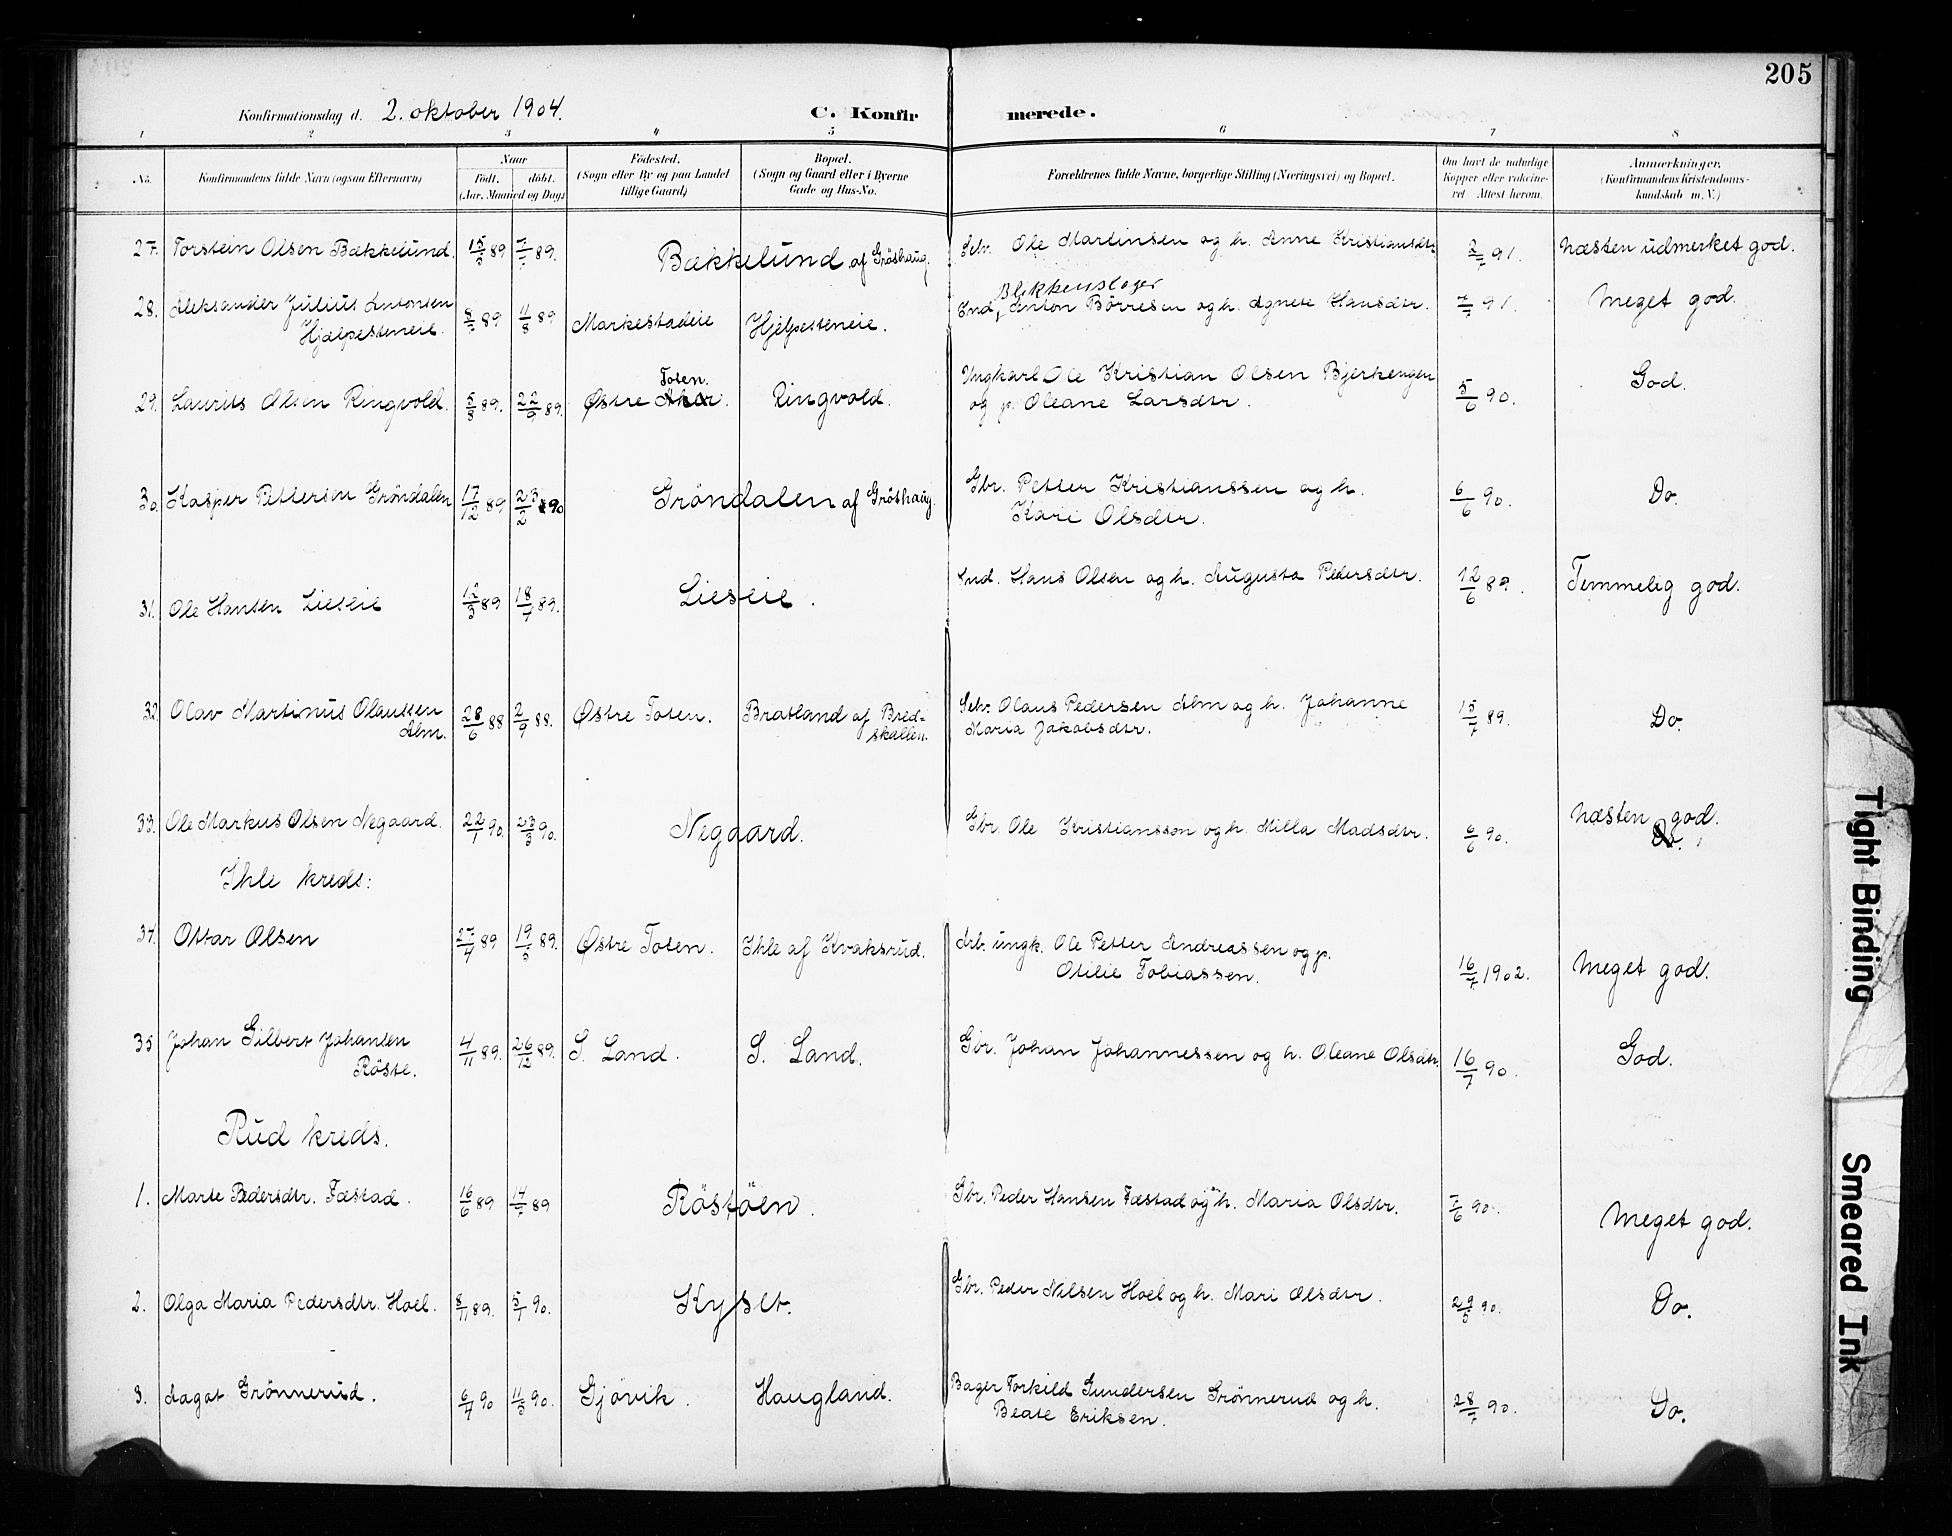 205
Konfirmationsdag d. 2. oktober 1904.
C. Konfirmerede.
1 2 3 4 5 6 7 8
No. Konfirmandens fulde Navn (ogsaa Efternavn) Naar Født. døbt. (Aar, Maaned og Dag) Fødested. (Sogn eller By og paa Landet tillige Gaard) Bopæl. (Sogn og Gaard eller i Byerne Gade og Hus-No. Forældrenes fulde Navne, borgerlige Stilling (Næringsvei) og Bopæl. Om havt de naturlige Kopper eller vaccineret Attest herom. Anmærkninger. (Konfirmandens Kristendomskundskab m. V.)
27. Torstein Olsen Bækkelund. 15/5 89 7/7 89. Bækkelund af Gröshaug. Selv. Ole Martinsen og h. Anne Kristiansdtr. 2/7 91. Næsten udmerket god.
28. Aleksander Julius Antonsen Hjælpesteneie. 8/7 89 11/8 89 Markestadeie Hjelpesteneie. Ind, Blikkenslager Anton Börresen og h. Agnete Hansdtr. 7/7 91. Meget god.
29. Laurits Olsen Ringvold. 5/8 89. 22/9 89. Østre Toten. Ringvold. Ungkarl Ole Kristian Olsen Bjerkengen
og p. Oleane Larsdtr. 5/6 90. God.
30. Kasper Pettersen Gröndalen 17/12 89 23/2 90 Gröndalen af Gröshaug. Gbr. Petter Kristianssen og h.
Kari Olsdtr. 6/6 90. Do.
31. Ole Hansen Lieseie 12/5 89 18/7 89. Lieseie. Ind. Hans Olsen og h. Augusta Pedersdtr. 12/6 89. Temmelig god.
32. Olav Martinus Olaussen Alm. 28/6 88 2/9 88. Østre Toten. Bratland af Bredskallen. Selv. Olaus Pedersen Alm og h. Johanne
Maria Jakobsdtr. 15/7 89. Do.
33. Ole Markus Olsen Negaard. 22/1 90 23/3 90. Negaard. Gbr. Ole Kristiansson og h. Milla Madsdtr. 6/6 90. Næsten god.
Ihle kreds:
34. Ottar Olsen 27/4 89 19/5 89. Østre Toten. Ihle af Kvaksrud. Arb. ungk. Ole Petter Andreassen og p.
Otilie Tobiassen. 16/7 1902. Meget god.
35 Johan Gilbert Johansen Röste. 4/11 89. 26/12 89. S. Land. S. Land. Gbr. Johan Johannessen og h. Oleane Olsdtr. 16/7 90. God.
Rud kreds.
1. Marte Pedersdtr. Fæstad. 16/6 89 14/7 89 Röstöen. Gbr. Peder Hansen Fæstad og h. Maria Olsdtr. 7/6 90. Meget god.
2. Olga Maria Pedersdtr. Hoel. 8/11 89. 5/1 90. Kyset. Gbr. Peder Nilsen Hoel og h. Mari Olsdtr. 29/5 90. Do.
3. Aagot Grönnerud. 6/4 90 11/5 90. Gjövik. Haugland. Bager Torkild Gundersen Grönnerud og h.
Beate Eriksen. 28/7 90. Do.
Tight Binding
Smeared Ink